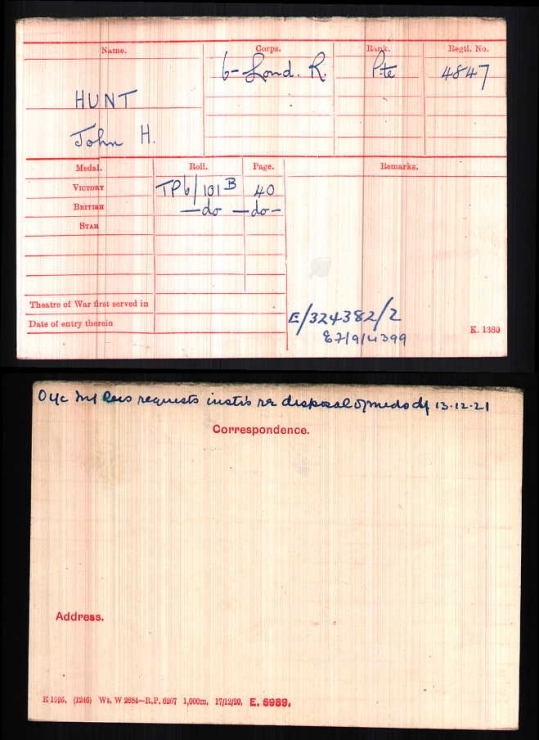 Name. Corps. Rank. Regtl. No.
6-Lond. R. Pte 4847
HUNT
John H.
Medal. Roll. Page. Remarks.
VICTORY TP6/101 B 40
BRITISH —do —do—
STAR
Theatre of War first served in
Date of entry therein
E/324382/2
K. 1380
O i/c requests instns re disposal of meds df 13.12.21
Correspondence.
Address.
K 1926. (1248) Wt. W 2884—R.P. 6267 1,000m. 17/12/20. E. 5989.